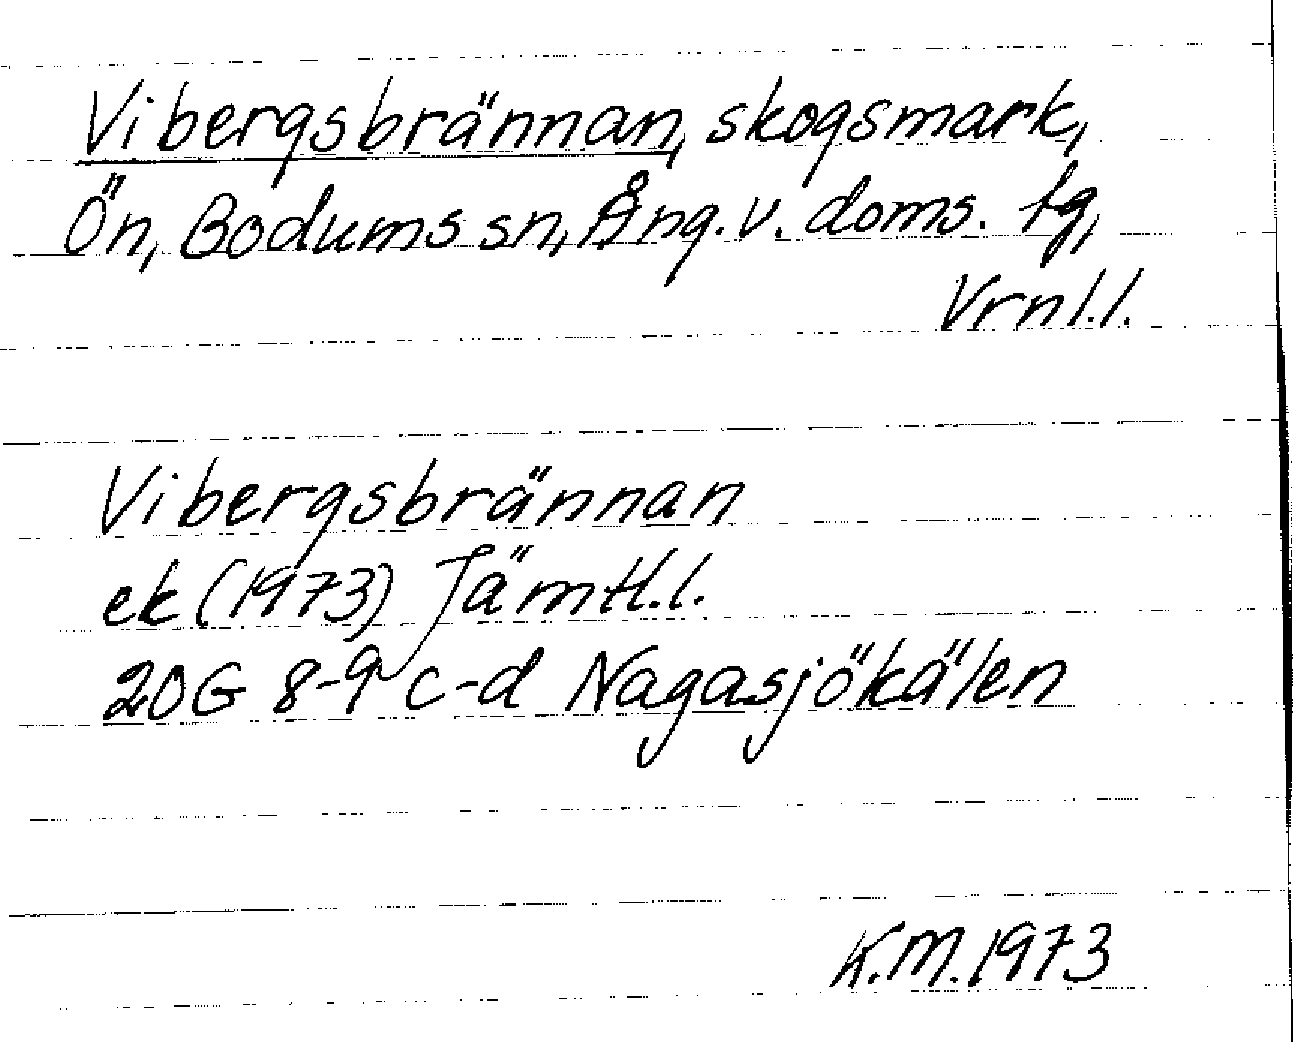 Vibergsbrännan, skogsmark,
Ön, Bodums sn, Ång. v. doms. tg,
Vrnl.l.
Vibergsbrännan
ek (1973) Jämtl.l.
20G 8-9 c-d Nagasjökälen
K.M. 1973